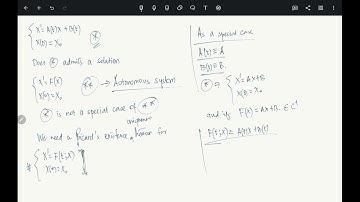 { X' = A(t)X + B(t)
X(0) = X₀ (*)
Does (*) admits a solution
{ X' = F(X)
X(0) = X₀ (**) → Autonomous system
(*) is not a special case of (**)
uniqueness
We need a Picard's existence theorem for
# { X' = F(t,X)
X(0) = X₀
As a special case
A(t) ≡ A
B(t) ≡ B.
(*) ⇒ { X' = AX+B
X(0) = X₀
and if F(X) = AX+B. ∈ C¹
F(t,X) = A(t)X + B(t)